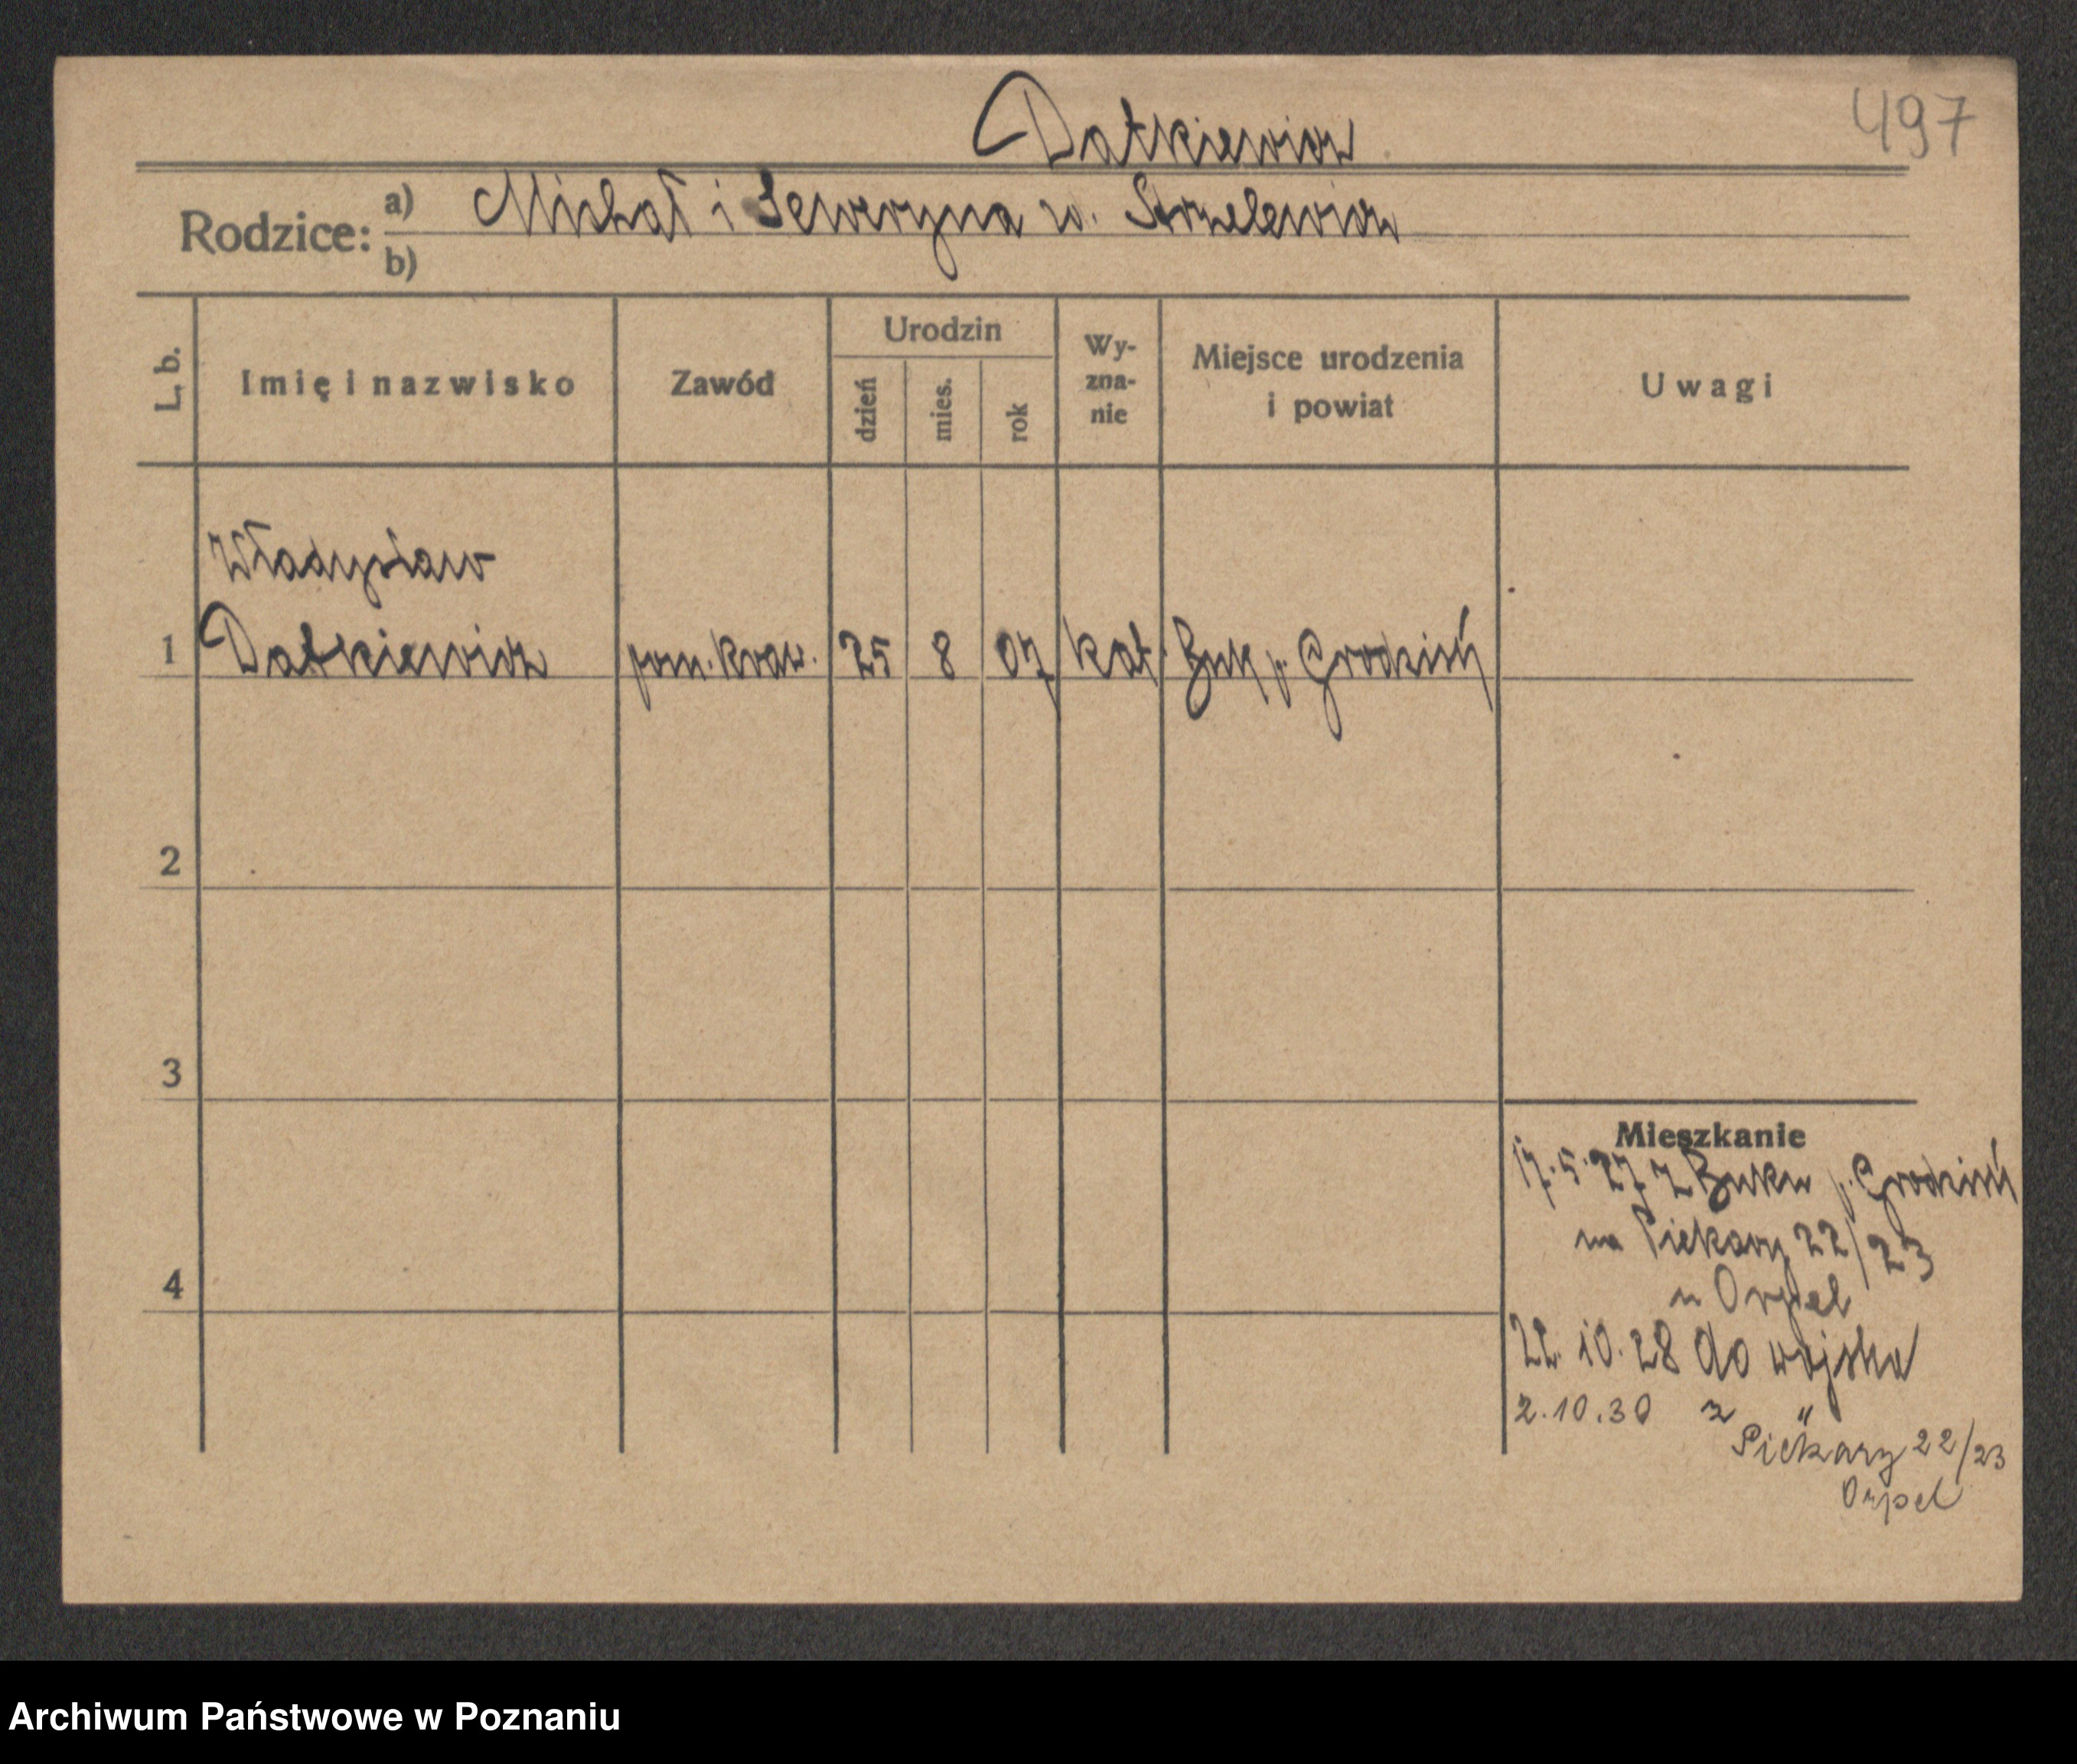 Datkiewicz
497
Rodzice: a) Michał i Seweryna u. Strzelewicz
b)
L. b.
Imię i nazwisko
Zawód
Urodzin
dzień
mies.
rok
Wy-
zna-
nie
Miejsce urodzenia
i powiat
Uwagi
Władysław
1 Datkiewicz pom. kraw. 25 8 07 kat. Buk p. Grodzisk
2
3
4
Mieszkanie
17.5.27 z Buku p. Grodzisk
na Piekary 22/23
u Orpel
22.10.28 do wojska
2.10.30 z "
Piekary 22/23
Orpel
Archiwum Państwowe w Poznaniu